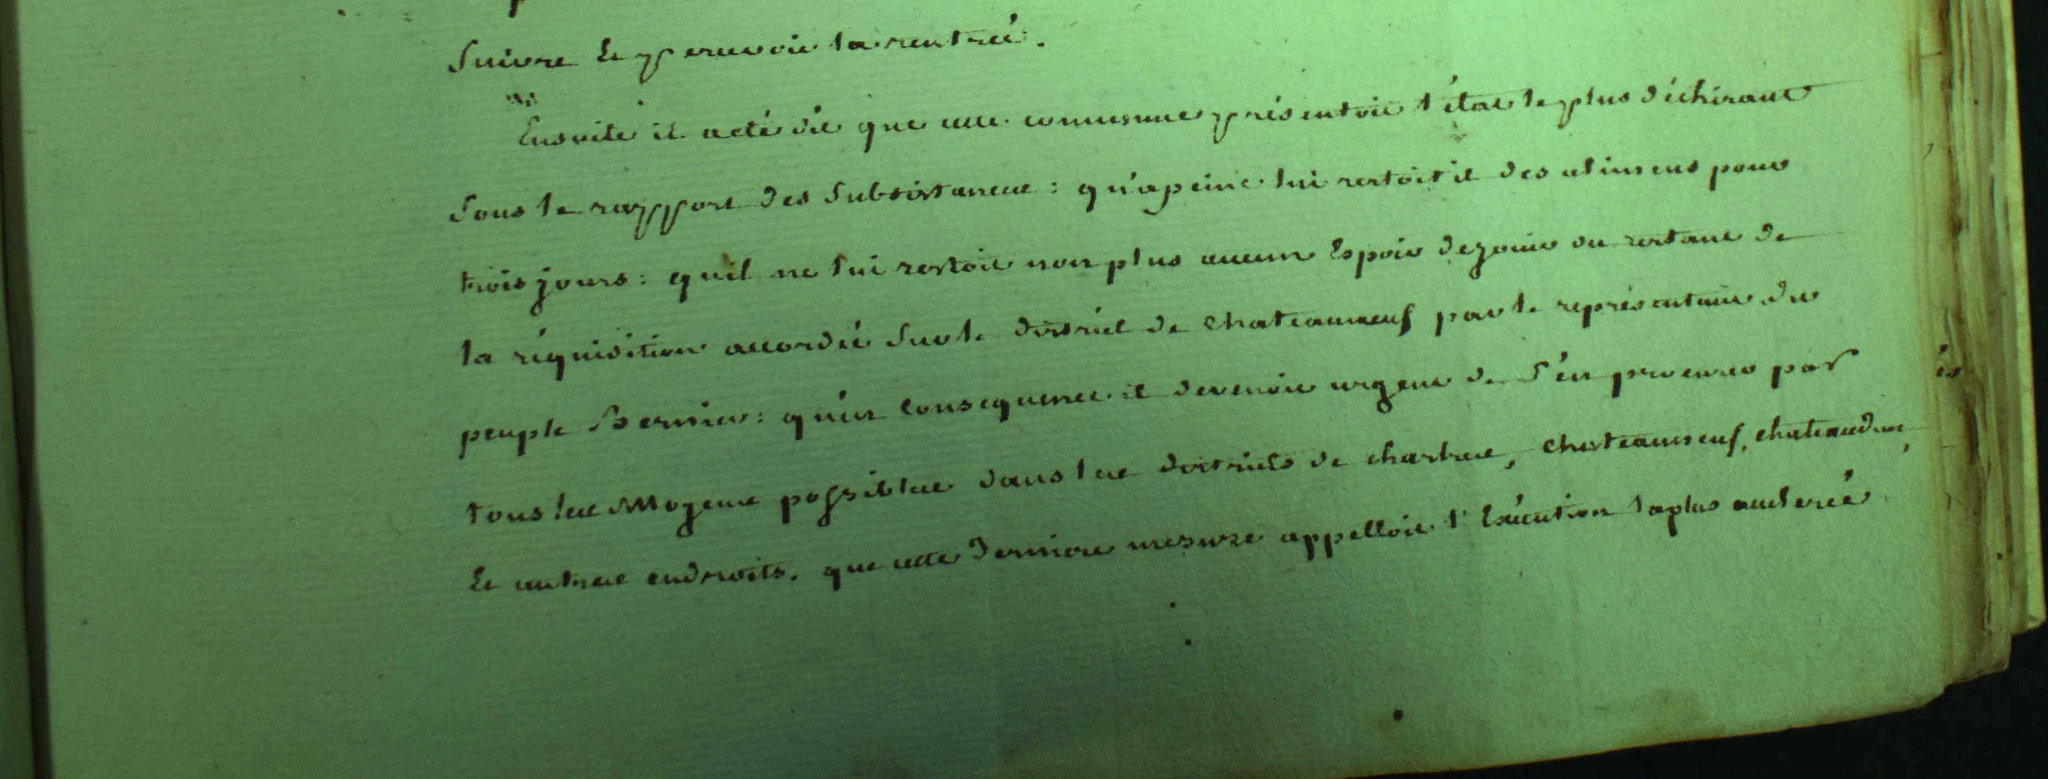 Suivre Et percevoir la rentrée.
Ensuite il a eté dit que cette commune présentoit l'état le plus déchirant
Sous le rapport des Subsistances : qu'apeine lui restoit il des alimens pour
trois jours : qu'il ne lui restoit non plus aucun Espoir de jouir du restant de
la réquisition accordée Sur le district de Chateauneuf par le représentant du
peuple Bernier : qu'en Conséquence il devenoit urgent de S'en procurer par
tous les Moyens possibles dans les districts de chartres, Chateauneuf, chateaudun,
Et autres endroits. que cette derniere mesure appelloit l'Exécution la plus accélerée